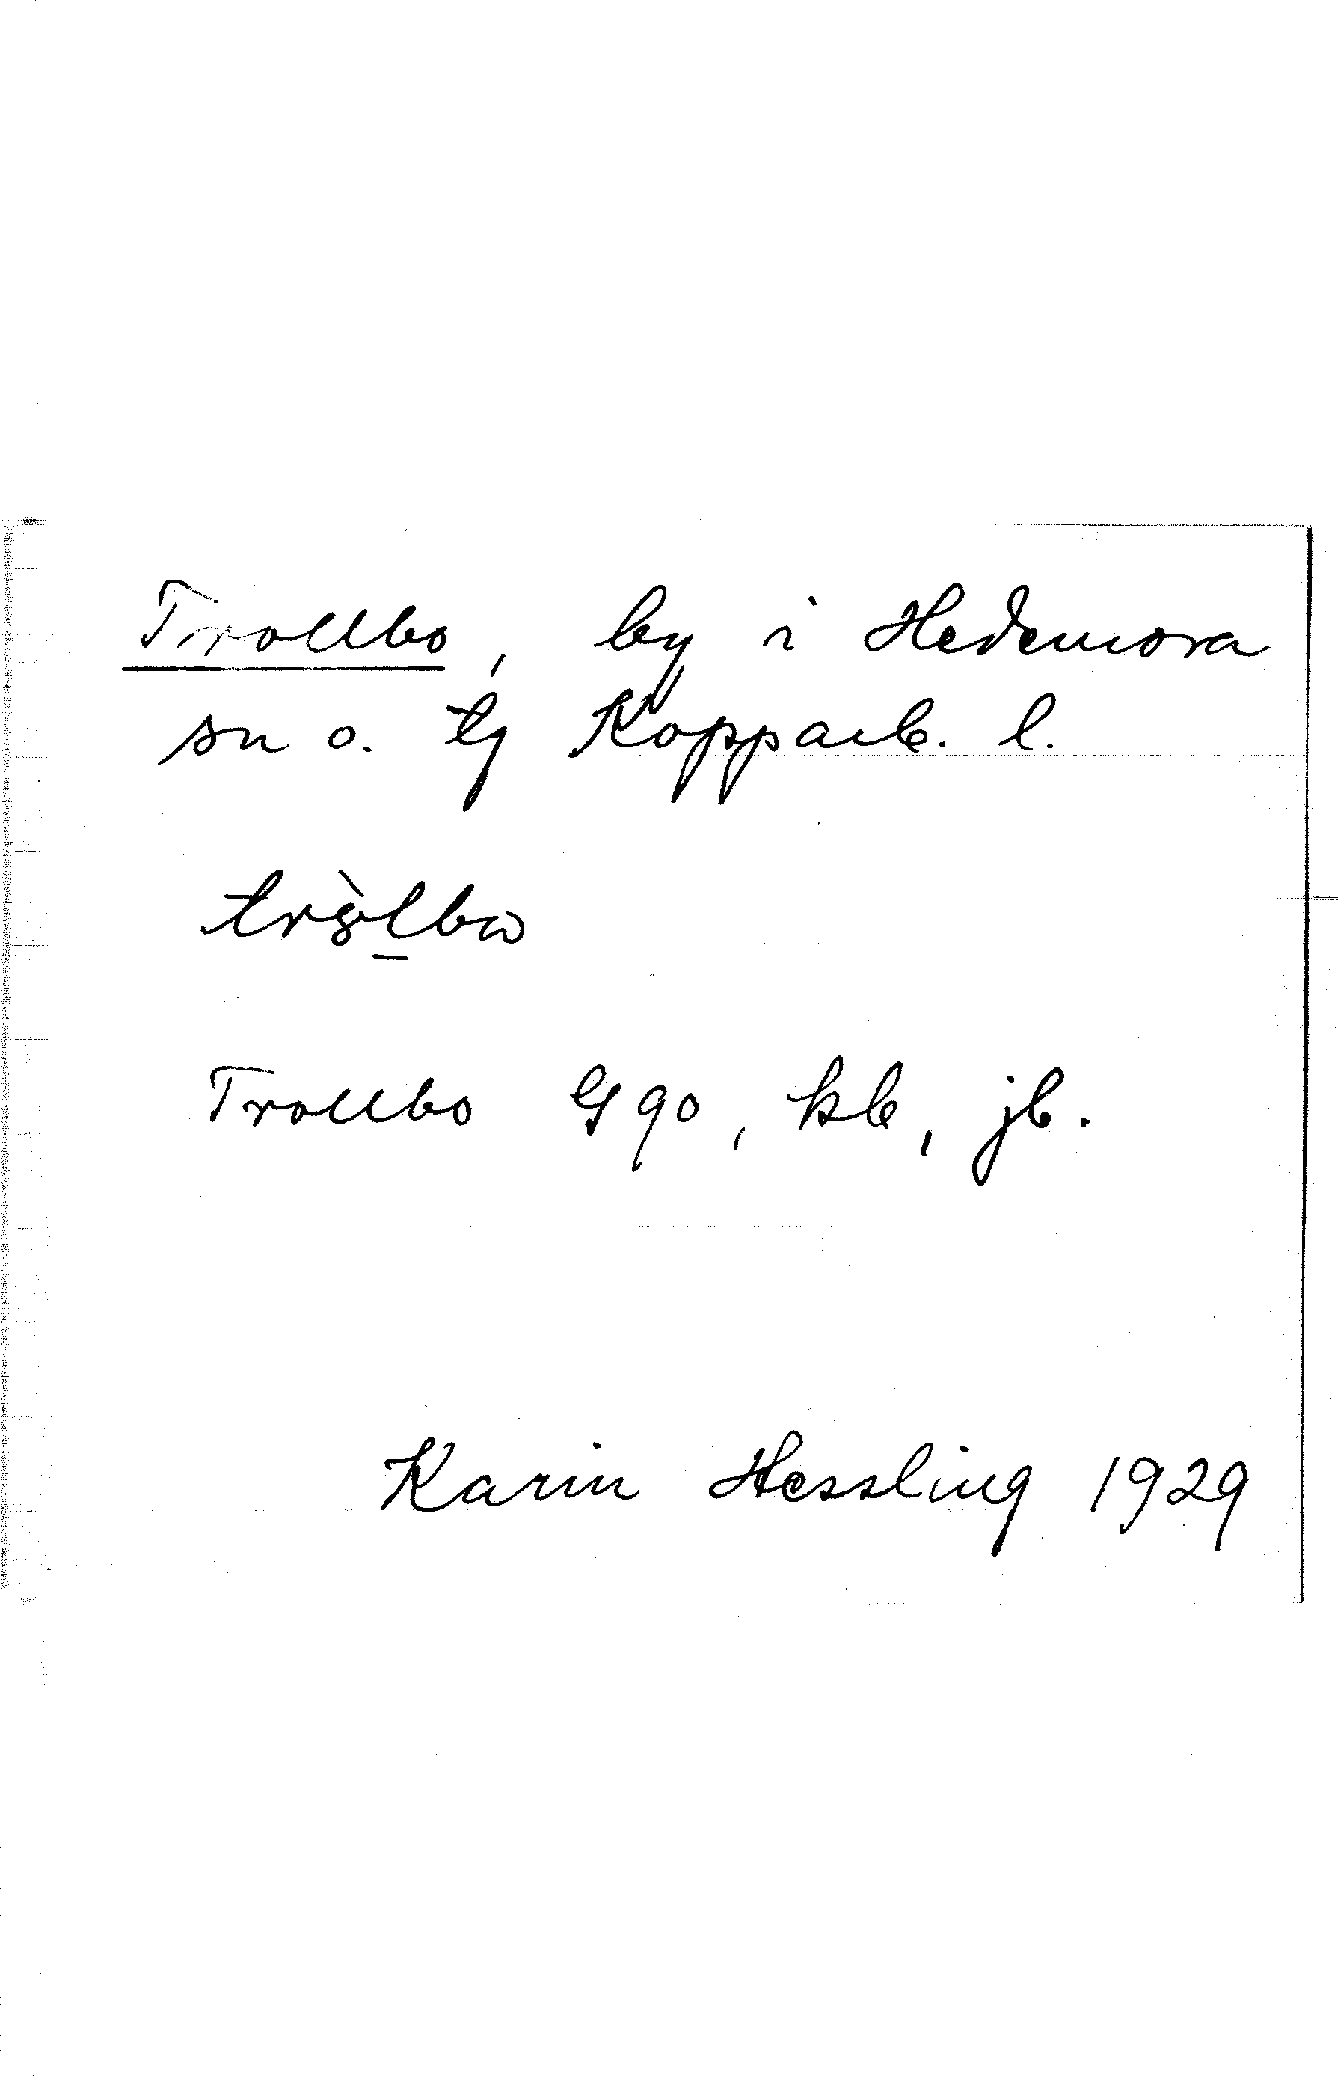 Trollbo, by i Hedemora
sn o. tg Kopparb. l.
Trollbo G 90, kb, jb.
Karin Hessling 1929